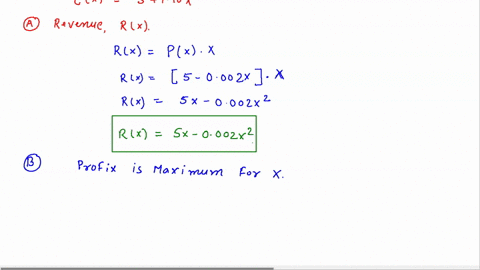 C(x) = 3+1.10x
(A) Revenue, R(x).
R(x) = P(x) · x
R(x) = [5-0.002x] · x
R(x) = 5x-0.002x²
R(x) = 5x-0.002x²
(B) Profix is Maximum For x.